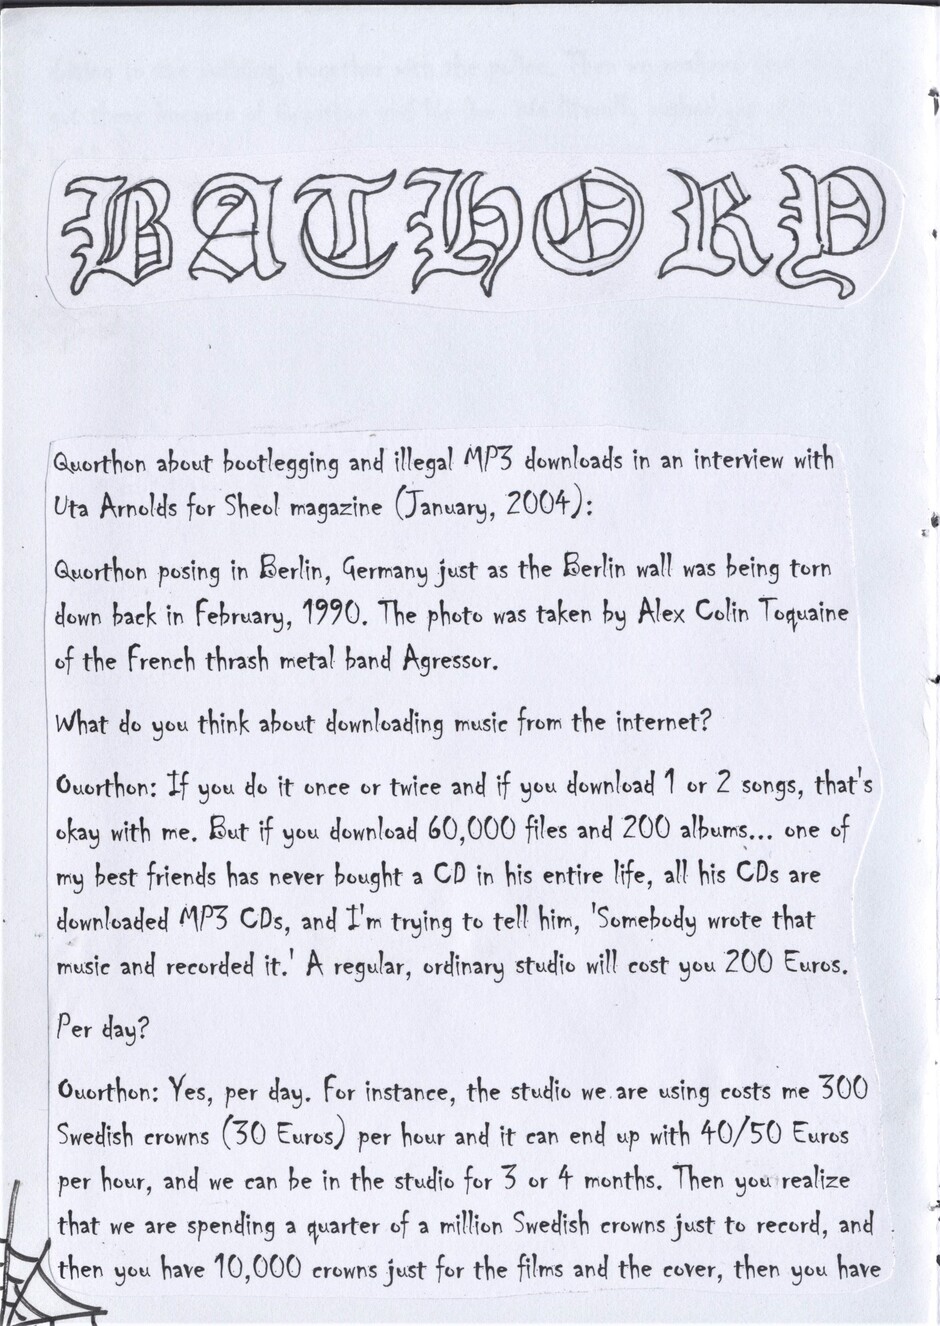 BATHORY
Quorthon about bootlegging and illegal MP3 downloads in an interview with
Uta Arnolds for Sheol magazine (January, 2004):
Quorthon posing in Berlin, Germany just as the Berlin wall was being torn
down back in February, 1990. The photo was taken by Alex Colin Toquaine
of the French thrash metal band Agressor.
What do you think about downloading music from the internet?
Ouorthon: If you do it once or twice and if you download 1 or 2 songs, that's
okay with me. But if you download 60,000 files and 200 albums... one of
my best friends has never bought a CD in his entire life, all his CDs are
downloaded MP3 CDs, and I'm trying to tell him, 'Somebody wrote that
music and recorded it.' A regular, ordinary studio will cost you 200 Euros.
Per day?
Ouorthon: Yes, per day. For instance, the studio we are using costs me 300
Swedish crowns (30 Euros) per hour and it can end up with 40/50 Euros
per hour, and we can be in the studio for 3 or 4 months. Then you realize
that we are spending a quarter of a million Swedish crowns just to record, and
then you have 10,000 crowns just for the films and the cover, then you have